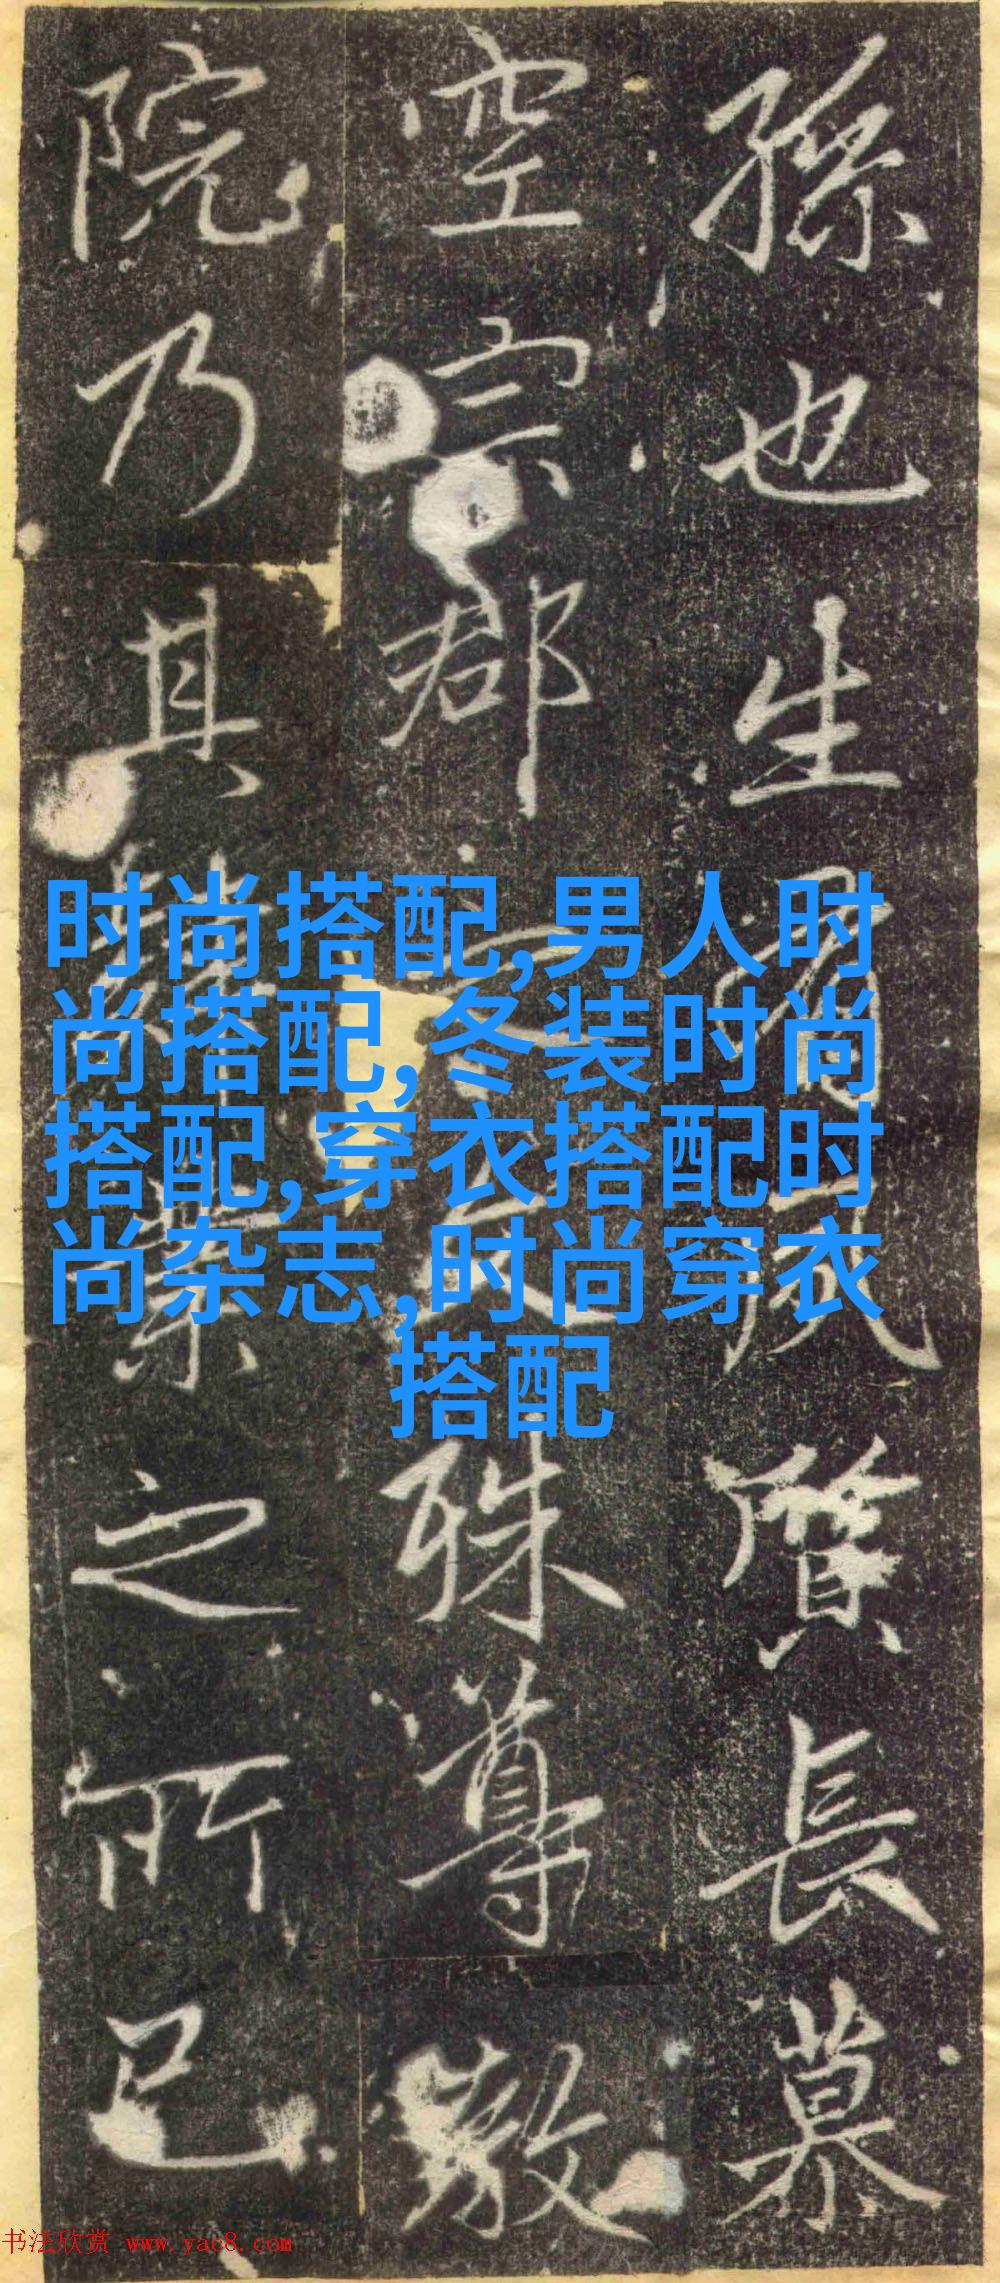 孫也生質長慕
空宗郡殊尊敬
院乃其之所已
时尚搭配,男人时
尚搭配,冬装时尚
搭配,穿衣搭配时
尚杂志,时尚穿衣
搭配
书法欣赏 www.yac8.com